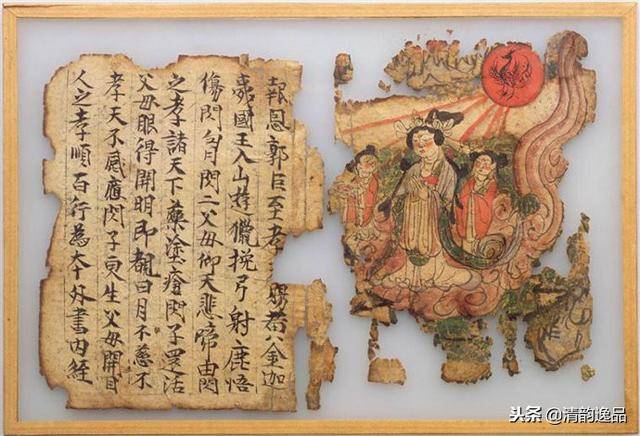 報恩郭巨至孝 賜金迦
夷國王入山遊獵挽弓射鹿悟
傷閃匈閃二父母仰天悲啼由閃
之孝諸天下藥塗瘡閃子還活
父母眼得開明即覩日月不慈不
孝天不感應閃子更生父母開目
人之孝順百行為本外書內經
头条 @清韵逸品